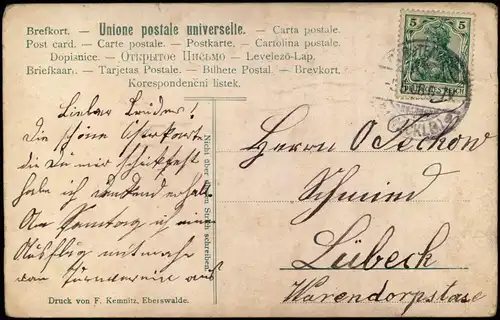 Brefkort. - Unione postale universelle. - Carta postala.
Post card. - Carte postale. - Postkarte. - Cartolina postale.
Dopisnice. - Открытое Письмо - Levelező-Lap.
Briefkaart. - Tarjetas Postale. - Bilhete Postal. - Brevkort.
Korespondenční listek.
5
5
Lieber Bruder!
Die schöne Osterkarte
die du mir schicktest
habe ich dankend erhalten
Am Sonntag ich einen
Ausflug mitmache
vom Turnverein aus
Nicht über diesen Strich schreiben!
Herrn O
Schmied
Lübeck
Warendorpstase
Druck von F. Kemnitz, Eberswalde.